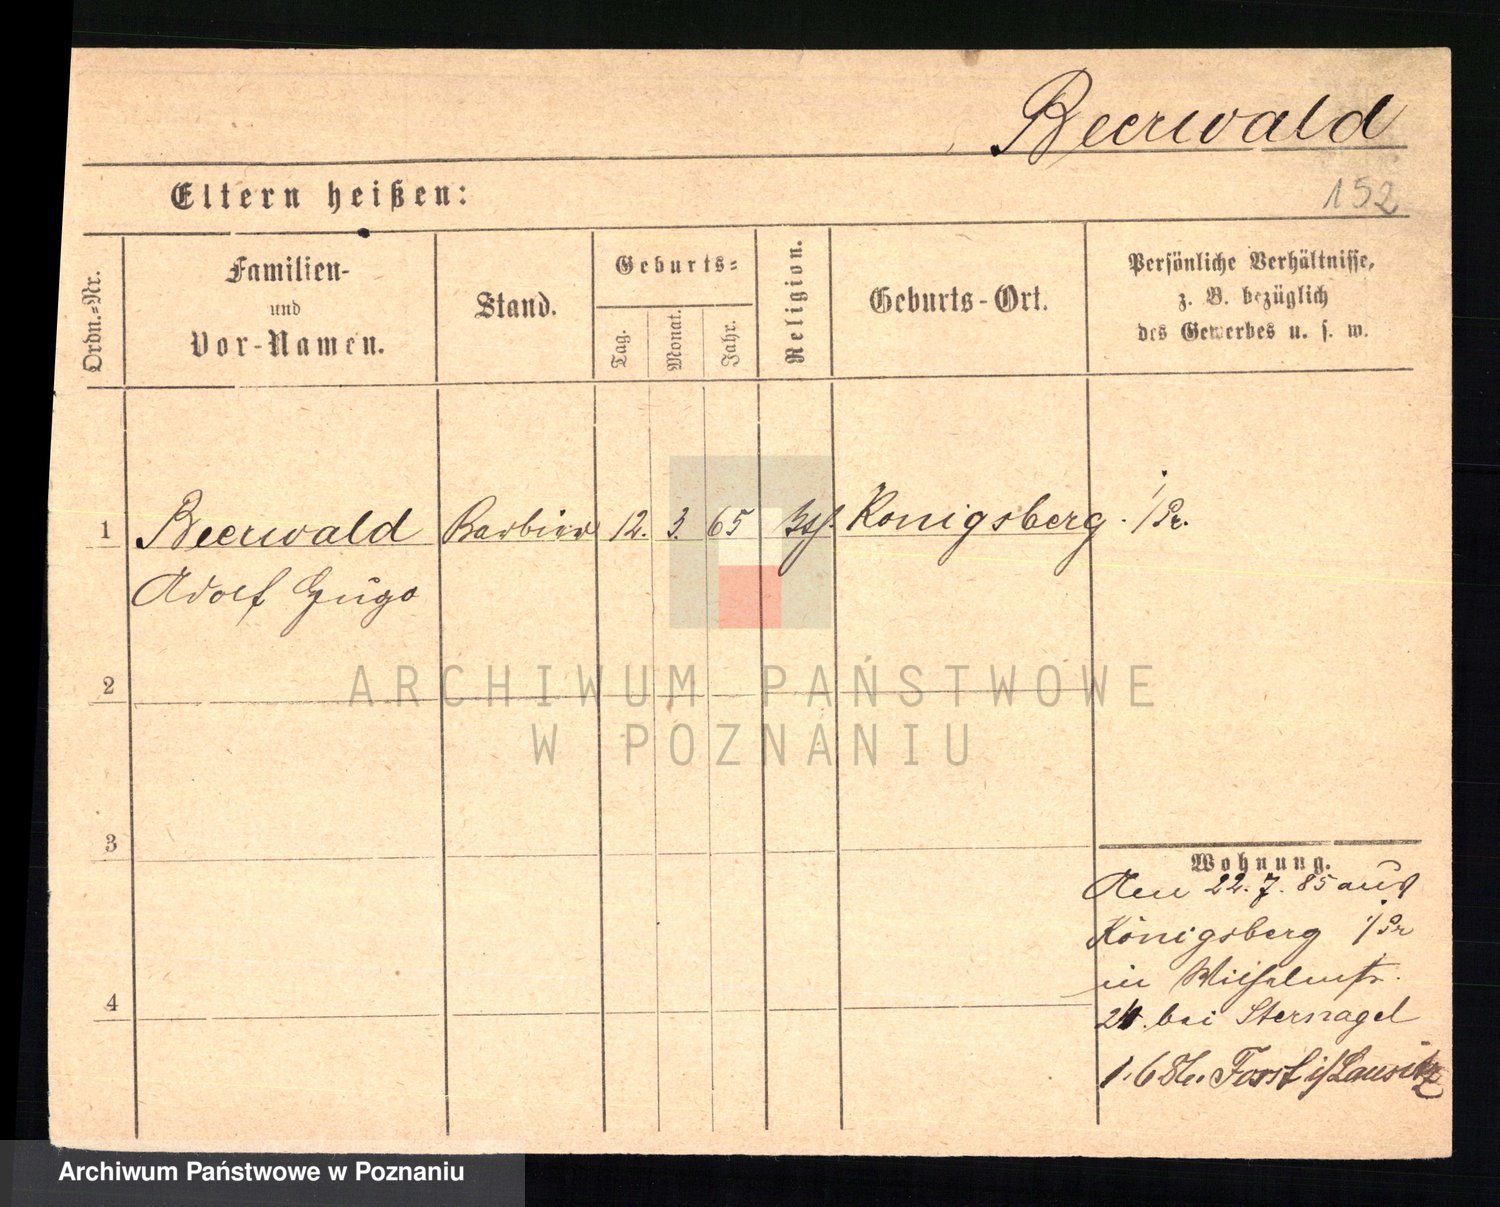 Beerwald
152
Eltern heißen:
Ordn.-Nr.
Familien-
und
Vor-Namen.
Stand.
Geburts-
Tag.
Monat.
Jahr.
Religion.
Geburts-Ort.
Persönliche Verhältnisse,
z. B. bezüglich
des Gewerbes u. s. w.
1 Beerwald Barbier 12. 3. 65 Königsberg i/Pr.
Adolf Hugo
2
3
4
Wohnung.
Den 22. 7. 85 aus
Königsberg i/Pr
in Wilhelmstr.
24. bei Sternagel
1.6 86. Forst i/Lausitz
ARCHIWUM PAŃSTWOWE
W POZNANIU
Archiwum Państwowe w Poznaniu